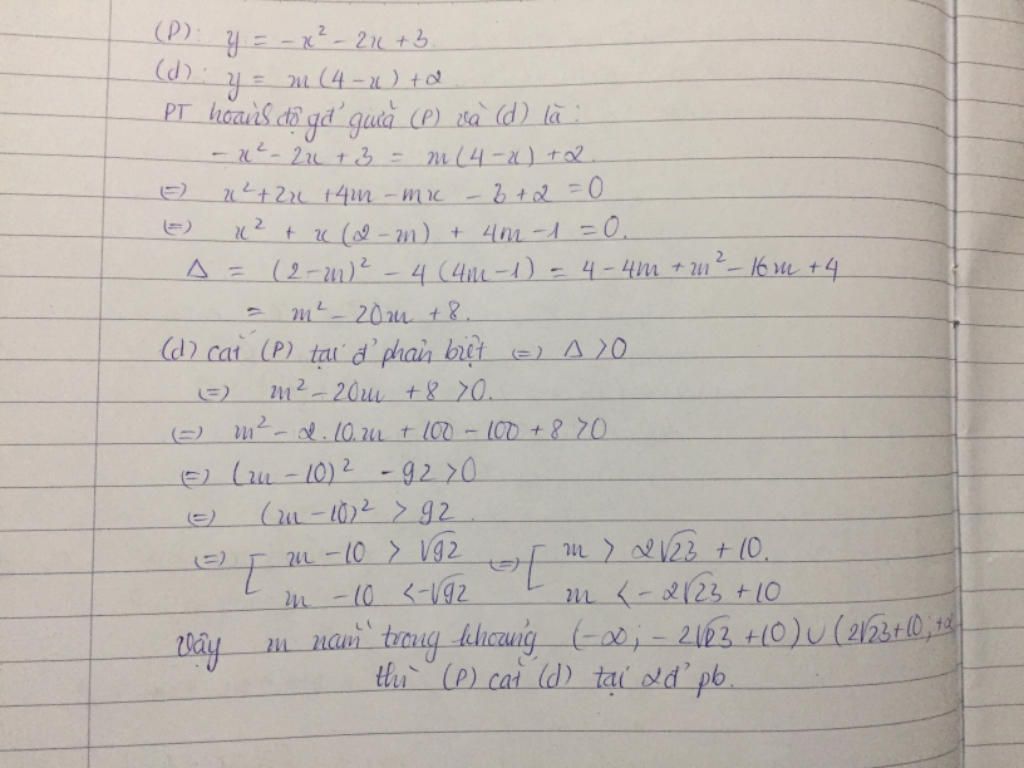 (P): y = -x² - 2x + 3.
(d): y = m(4-x) + 2
PT hoành độ gđ' giữa (P) và (d) là:
-x² - 2x + 3 = m(4-x) + 2.
(=) x² + 2x + 4m - mx - 3 + 2 = 0
(=) x² + x(2-m) + 4m - 1 = 0.
Δ = (2-m)² - 4(4m-1) = 4 - 4m + m² - 16m + 4
= m² - 20m + 8.
(d) cắt (P) tại đ' phân biệt (=) Δ > 0
(=) m² - 20m + 8 > 0.
(=) m² - 2.10.m + 100 - 100 + 8 > 0
(=) (m - 10)² - 92 > 0
(=) (m - 10)² > 92
(=) [ m - 10 > √92 (=) [ m > 2√23 + 10.
m - 10 < -√92 m < -2√23 + 10
Vậy m nằm trong khoảng (-∞; -2√23 + 10) ∪ (2√23 + 10; +∞
thì (P) cắt (d) tại 2 đ' pb.